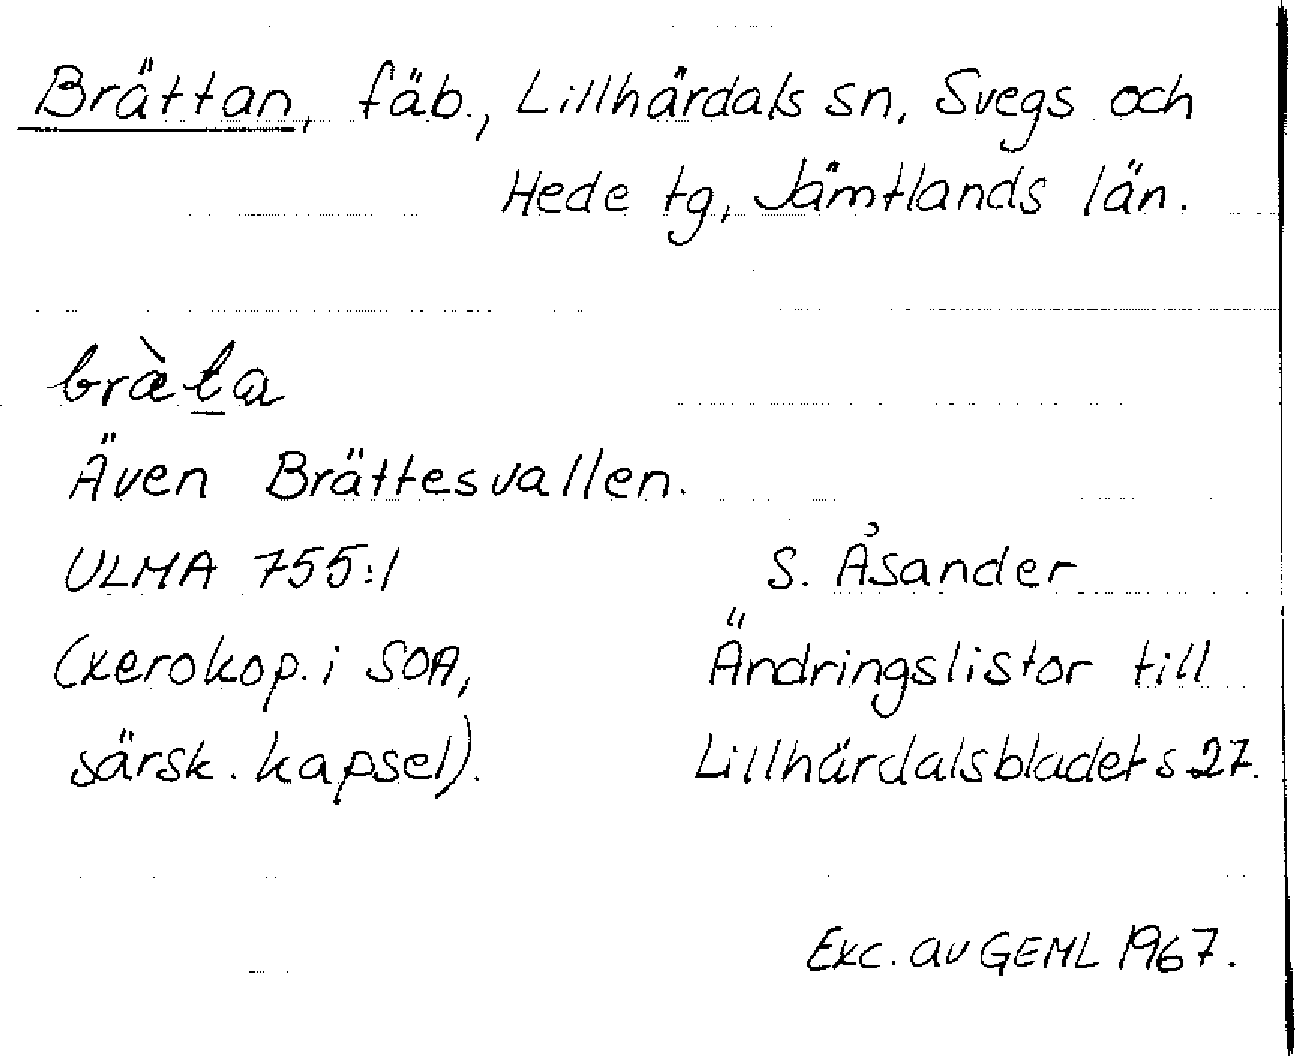 Brättan, fäb., Lillhärdals sn, Svegs och
Hede tg, Jämtlands län.
bræ̀t̲a
Även Brättesvallen.
ULMA 755:1 S. Åsander
(xerokop. i SOA, Ändringslistor till
särsk. kapsel). Lillhärdalsbladet s 27.
Exc. av GEML 1967.